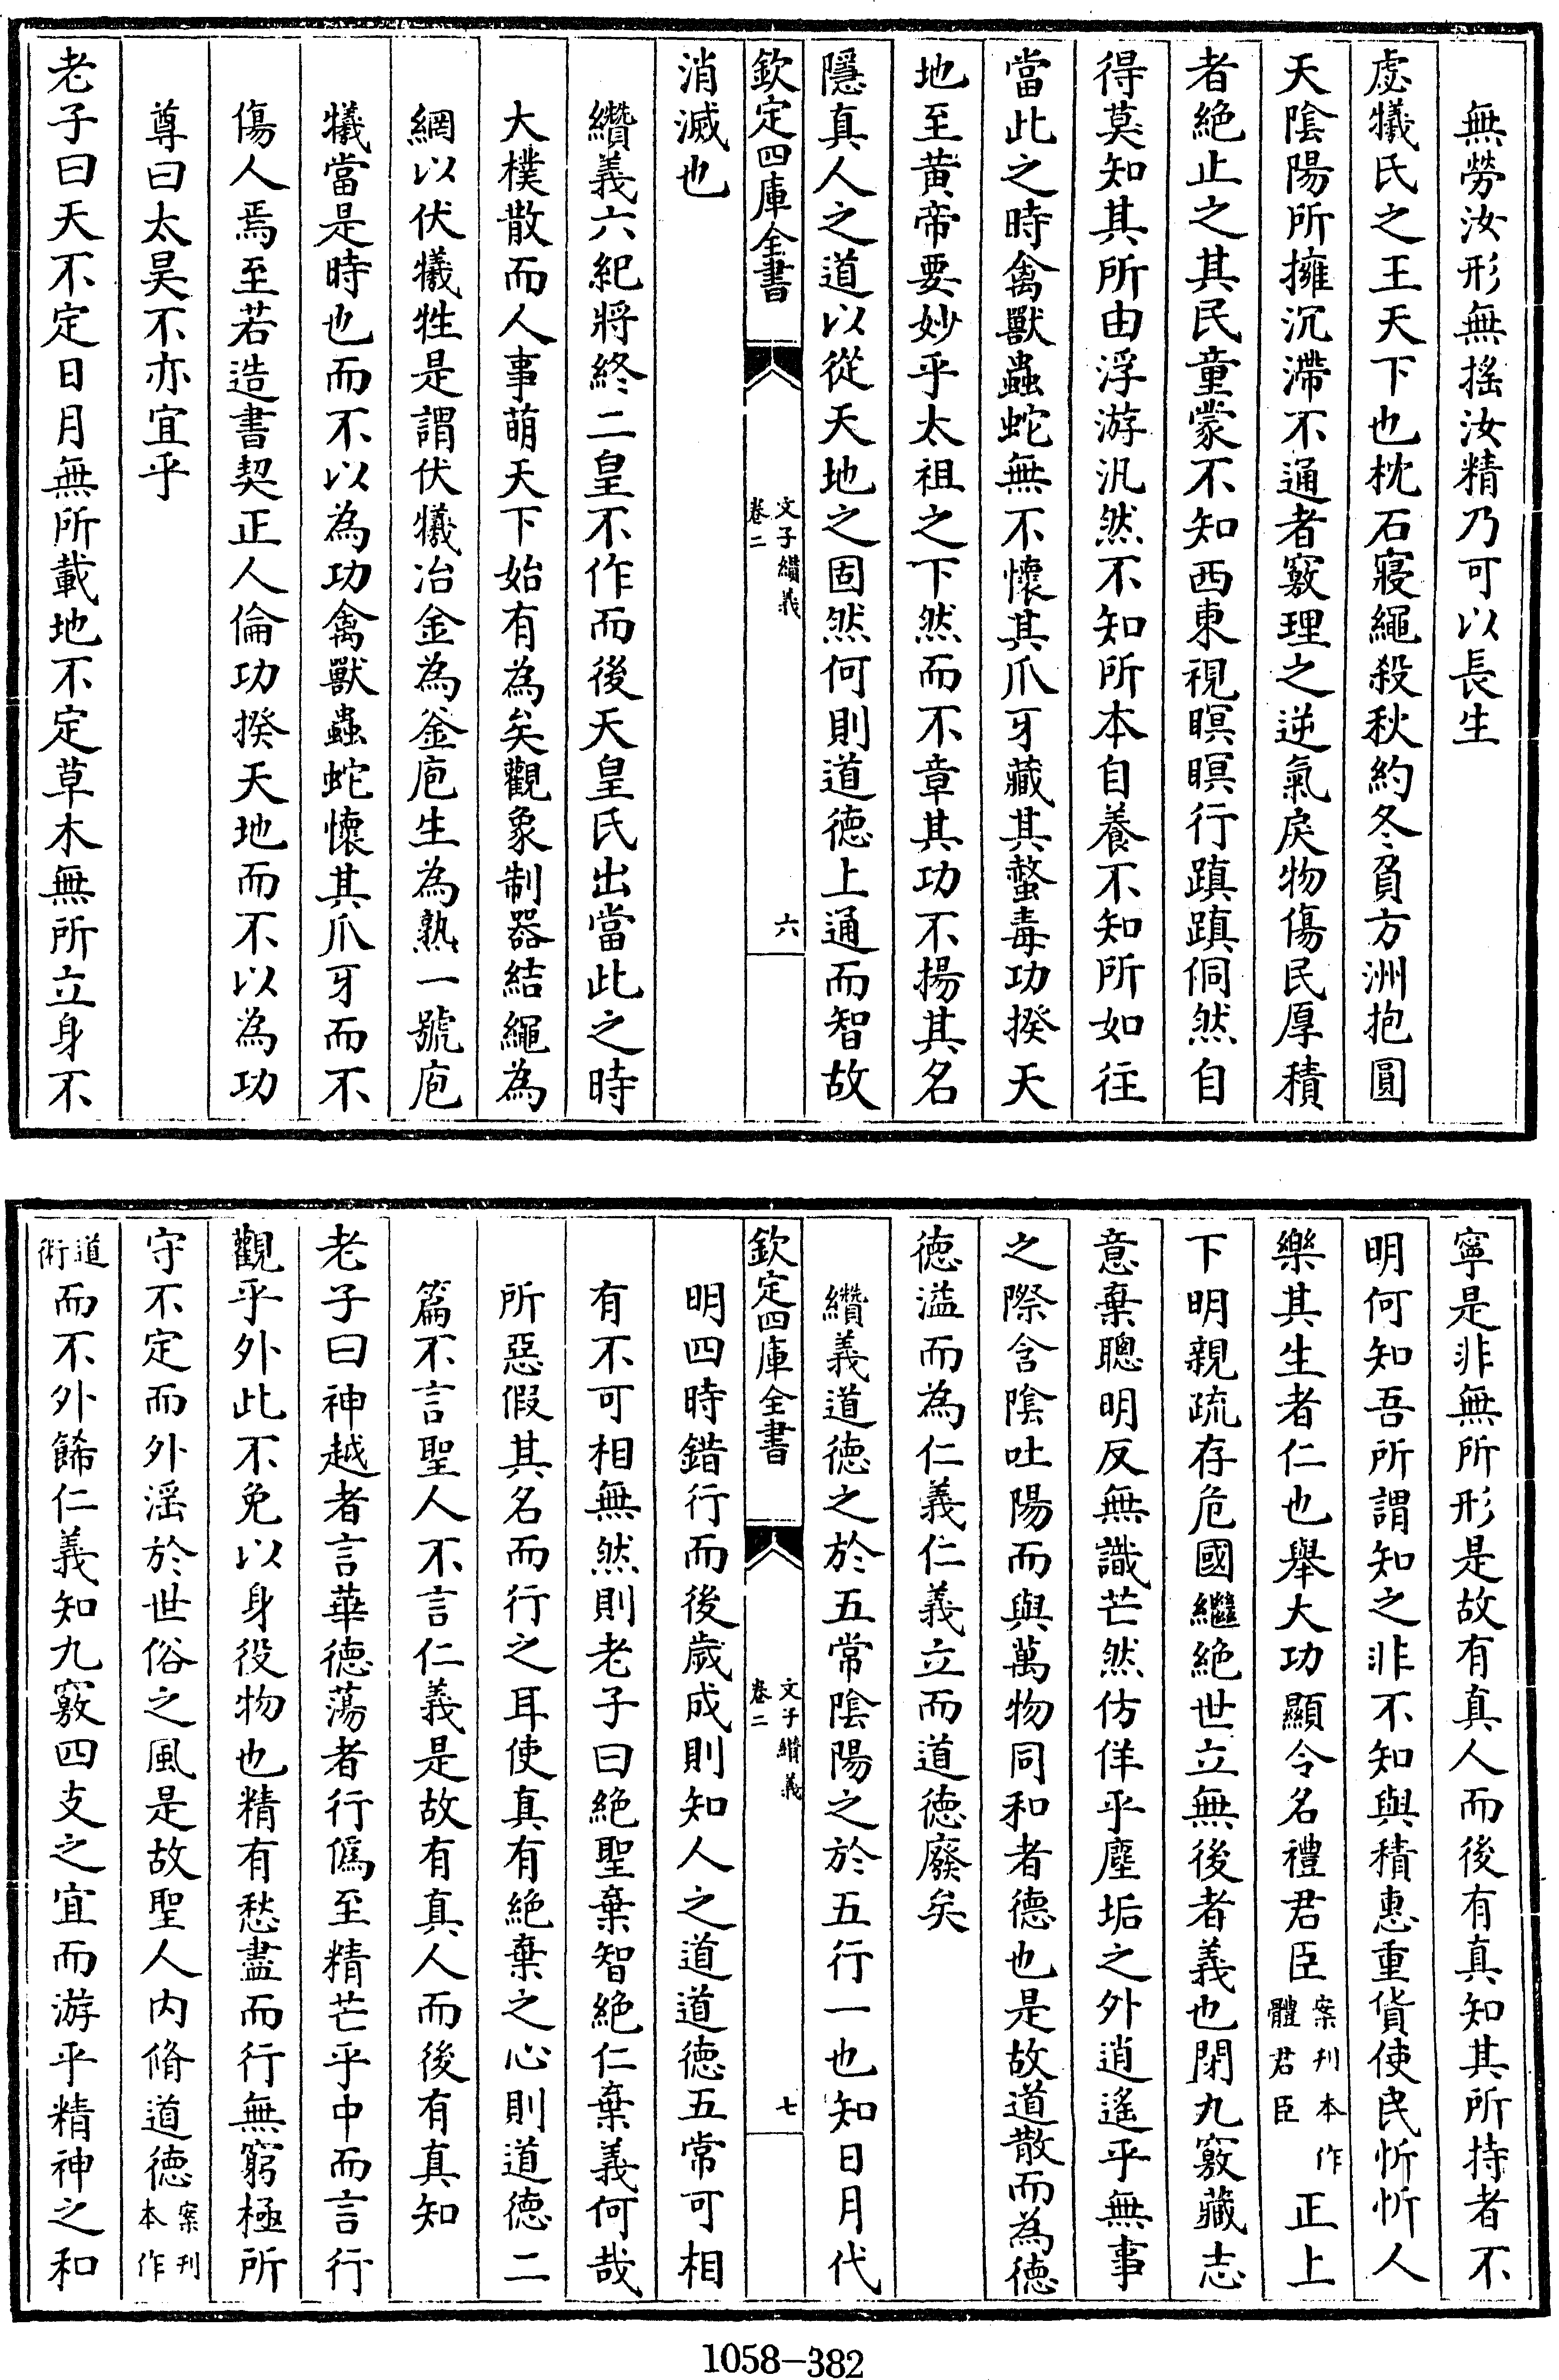 無勞汝形無摇汝精乃可以長生
虙犧氏之王天下也枕石寢繩殺秋約冬負方洲抱圓
天隂陽所擁沉滯不通者竅理之逆氣戾物傷民厚積
者絶止之其民童蒙不知西東視瞑瞑行蹎蹎侗然自
得莫知其所由浮游汎然不知所本自養不知所如往
當此之時禽獸蟲蛇無不懷其爪牙藏其螫毒功揆天
地至黄帝要妙乎太祖之下然而不章其功不揚其名
隱真人之道以從天地之固然何則道德上通而智故
欽定四庫全書
文子纘義
卷二
六
消滅也
纘義六紀將終二皇不作而後天皇氏出當此之時
大樸散而人事萌天下始有為矣觀象制器結繩為
網以伏犧牲是謂伏犧冶金為釜庖生為熟一號庖
犧當是時也而不以為功禽獸蟲蛇懷其爪牙而不
傷人焉至若造書契正人倫功揆天地而不以為功
尊曰太昊不亦宜乎
老子曰天不定日月無所載地不定草木無所立身不
寧是非無所形是故有真人而後有真知其所持者不
明何知吾所謂知之非不知與積惠重貨使民忻忻人
樂其生者仁也舉大功顯令名禮君臣案刋本作體君臣正上
下明親疏存危國繼絶世立無後者義也閉九竅藏志
意棄聰明反無識芒然仿佯乎塵垢之外逍遙乎無事
之際含隂吐陽而與萬物同和者德也是故道散而為德
德溢而為仁義仁義立而道德廢矣
纘義道德之於五常陰陽之於五行一也知日月代
欽定四庫全書
文子纘義
卷二
七
明四時錯行而後歲成則知人之道道德五常可相
有不可相無然則老子曰絶聖棄智絶仁棄義何哉
所惡假其名而行之耳使真有絶棄之心則道德二
篇不言聖人不言仁義是故有真人而後有真知
老子曰神越者言華德蕩者行僞至精芒乎中而言行
觀乎外此不免以身役物也精有愁盡而行無窮極所
守不定而外滛於世俗之風是故聖人内脩道德案刋本作
道術而不外餙仁義知九竅四支之宜而游乎精神之和
1058-382